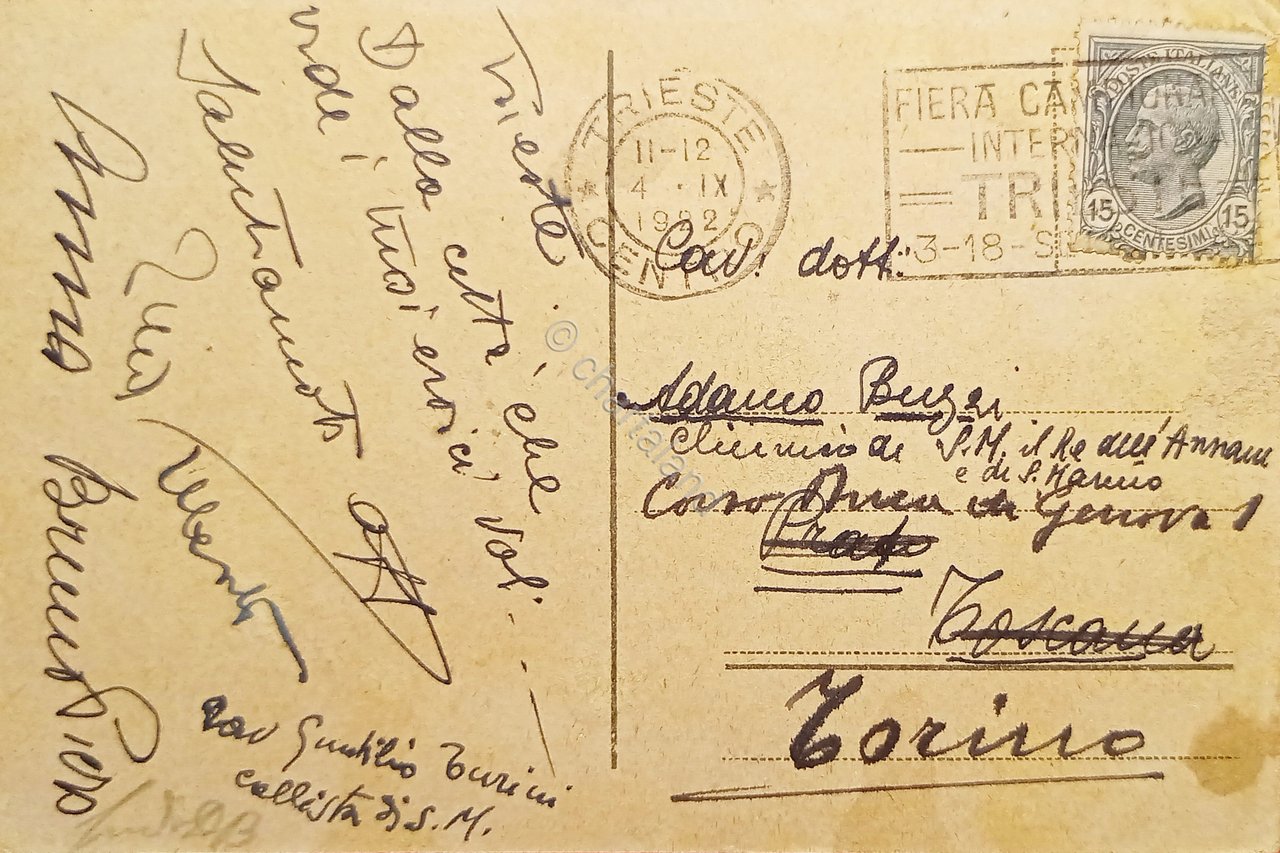 Trieste
Dalla città che
vide i tuoi eroici voli...
Salutiamoti
Anna Bruno Piero
cav Gentilio Turini
callista di S.M.
TRIESTE
11-12
4 · IX
1922
CENTRO
FIERA CAMPIONARIA
INTERN
TRI
3-18-SE
POSTE ITALIANE
15 CENTESIMI 15
Cav: dott:
Adamo Buzzi
Chimico di S.M. il Re dell'Annam
e di S. Marino
Corso Duca di Genova 1
Prato
Toscana
Torino
© chartaland